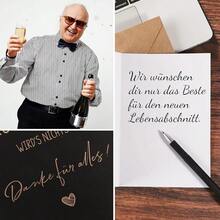 Wir wünschen
dir nur das Beste
für den neuen
Lebensabschnitt.
WIRD'S NICHT
Danke für alles!